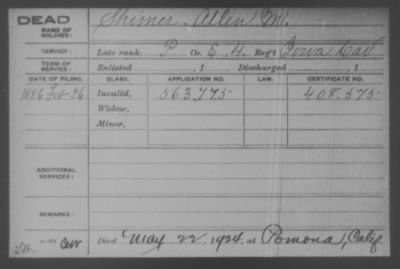 DEAD
NAME OF SOLDIER: Shimer, Allen M.
SERVICE: Late rank, P Co. E, 4. Reg't Iowa Cav
TERM OF SERVICE: Enlisted , 1 Discharged , 1
DATE OF FILING. CLASS. APPLICATION NO. LAW. CERTIFICATE NO.
1886 Feb 26 Invalid, 563,775 408,575
Widow,
Minor,
ADDITIONAL SERVICES:
REMARKS:
Died May 22, 1924, at Pomona, Calif